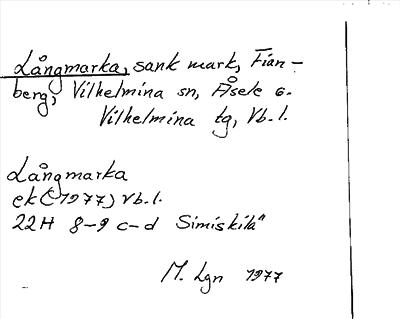 Långmarka, sank mark, Fian-
berg, Vilhelmina sn, Åsele o.
Vilhelmina tg, Vb. l.
Långmarka
ek (-1977) Vb. l.
22H 8-9 c-d Simiskilä"
M. Lgn 1977